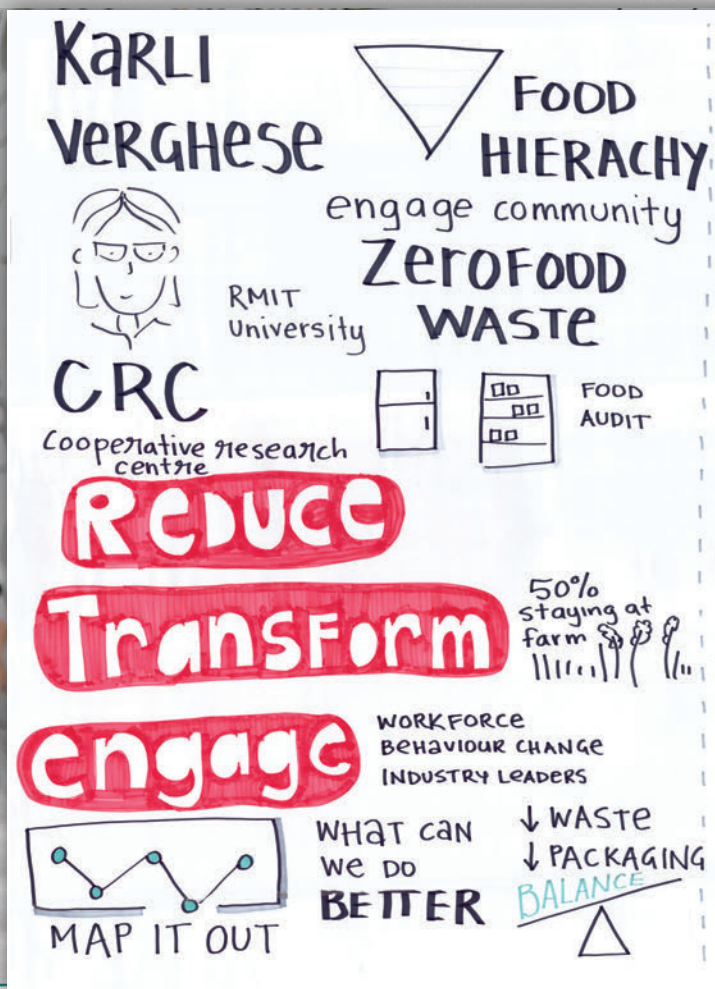 KaRLI
VeRGHese
FOOD
HIERACHY
engage community
ZeroFOOD
WASTe
RMIT
university
CRC
cooperative research
centre
FOOD
AUDIT
ReDUce
TransForm
50%
staying at
farm
engage
WORKFORce
BeHaVIOUR CHANGe
INDUSTRY LeADERS
MAP IT OUT
WHaT CaN
We DO
BETTER
↓ WASTe
↓ PACKAGING
BALANCE